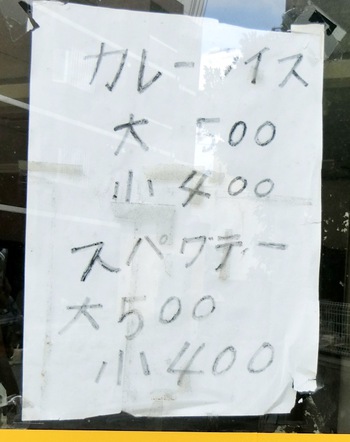 カレーライス
大 500
小 400
スパゲティー
大 500
小 400